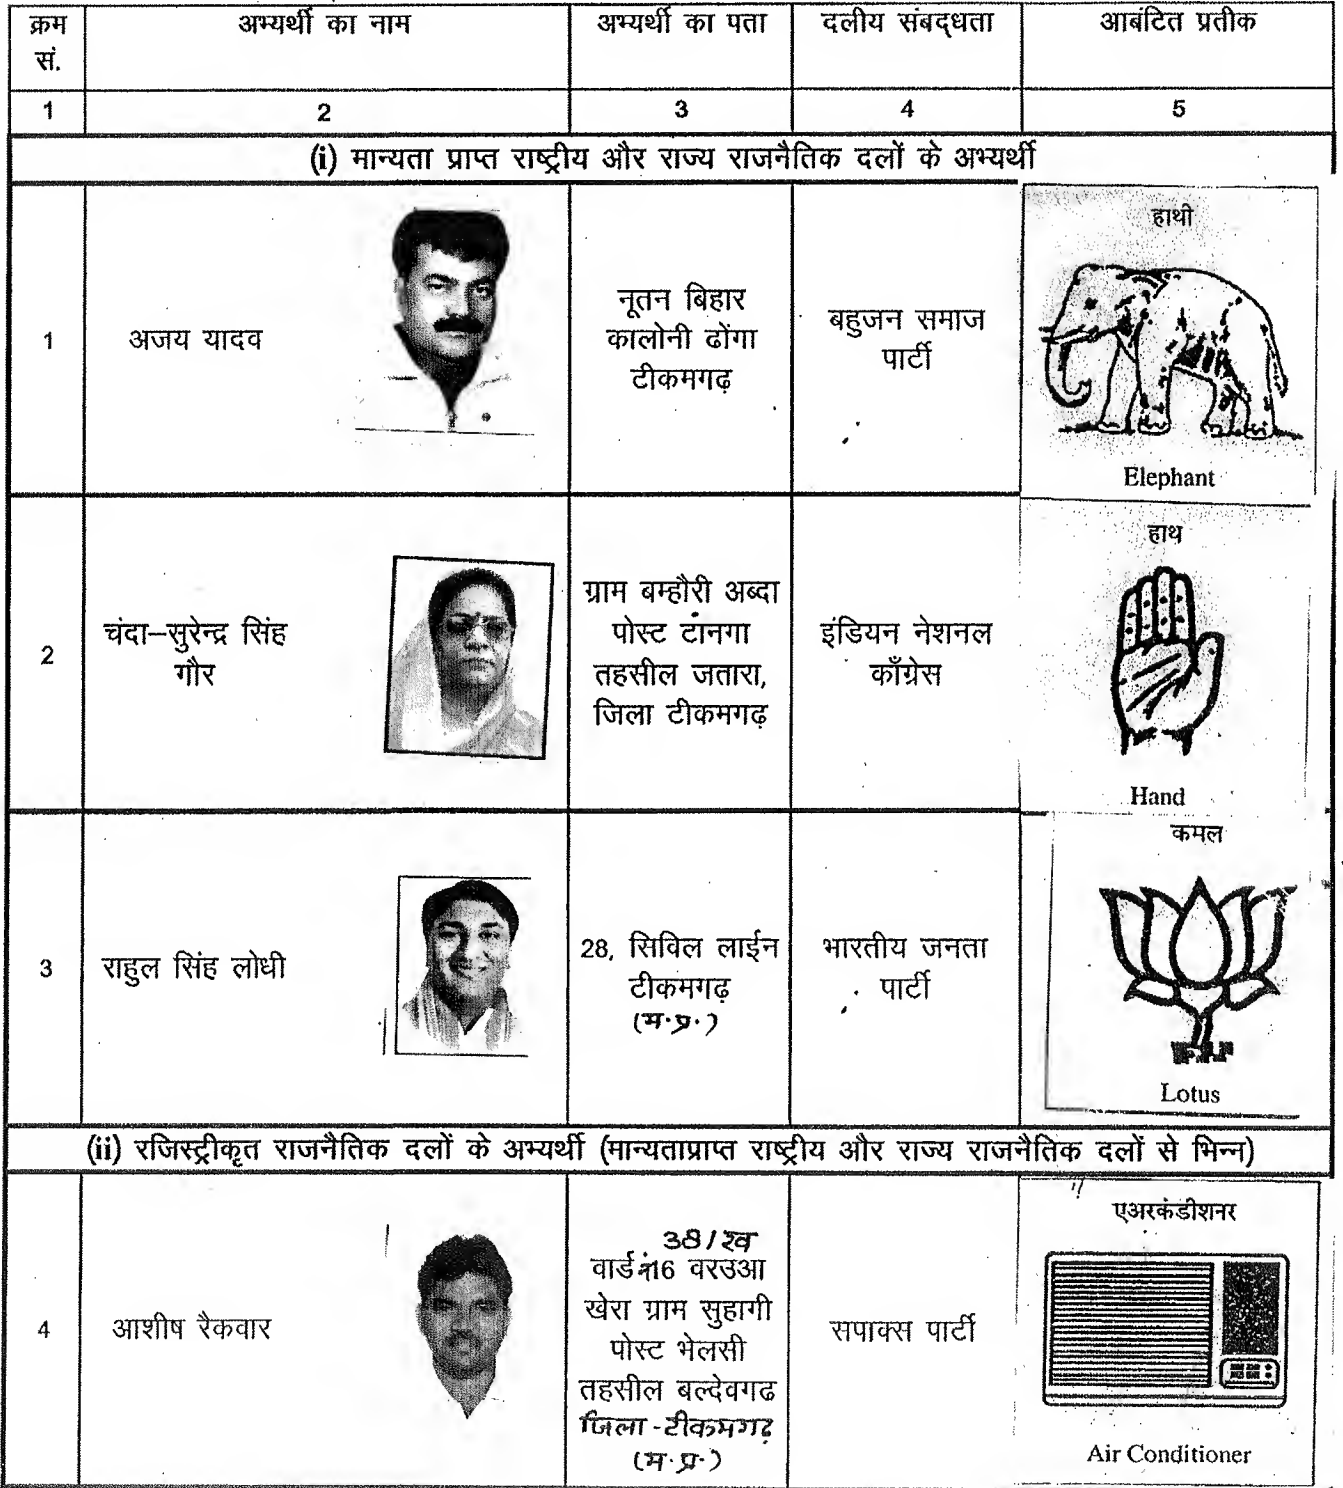 क्रम सं.
अभ्यर्थी का नाम
अभ्यर्थी का पता
दलीय संबद्धता
आबंटित प्रतीक
1
2
3
4
5
(i) मान्यता प्राप्त राष्ट्रीय और राज्य राजनैतिक दलों के अभ्यर्थी
1
अजय यादव
नूतन बिहार
कालोनी ढोंगा
टीकमगढ़
बहुजन समाज
पार्टी
हाथी
Elephant
2
चंदा–सुरेन्द्र सिंह
गौर
ग्राम बम्हौरी अब्दा
पोस्ट टानगा
तहसील जतारा,
जिला टीकमगढ़
इंडियन नेशनल
काँग्रेस
हाथ
Hand
3
राहुल सिंह लोधी
28, सिविल लाईन
टीकमगढ़
(म.प्र.)
भारतीय जनता
पार्टी
कमल
Lotus
(ii) रजिस्ट्रीकृत राजनैतिक दलों के अभ्यर्थी (मान्यताप्राप्त राष्ट्रीय और राज्य राजनैतिक दलों से भिन्न)
4
आशीष रैकवार
38/ख
वार्ड नं16 वरउआ
खेरा ग्राम सुहागी
पोस्ट भेलसी
तहसील बल्देवगढ
जिला-टीकमगढ़
(म.प्र.)
सपाक्स पार्टी
एअरकंडीशनर
Air Conditioner